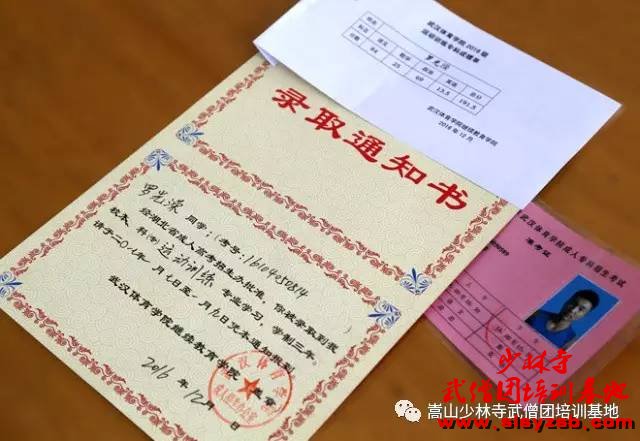 武汉体育学院2016级
运动训练专科成绩单
姓名
罗光深
科目 语文 数学 政治 英语 总分
分数 84 25 69 13.5 191.5
武汉体育学院继续教育学院
2016年12月
录取通知书
罗光深 同学:(考号:
经湖北省成人高考招生办批准,你被录取到我
校 科 运动训练 专业学习,学制三年。
请于二〇一七年一月七日至一月九日凭本通知报到
武汉体育学院继续教育学院
2016年12月
武汉体育学院成人专科招生考试
准考证
少林寺
武僧团培训基地
嵩山少林寺武僧团培训基地